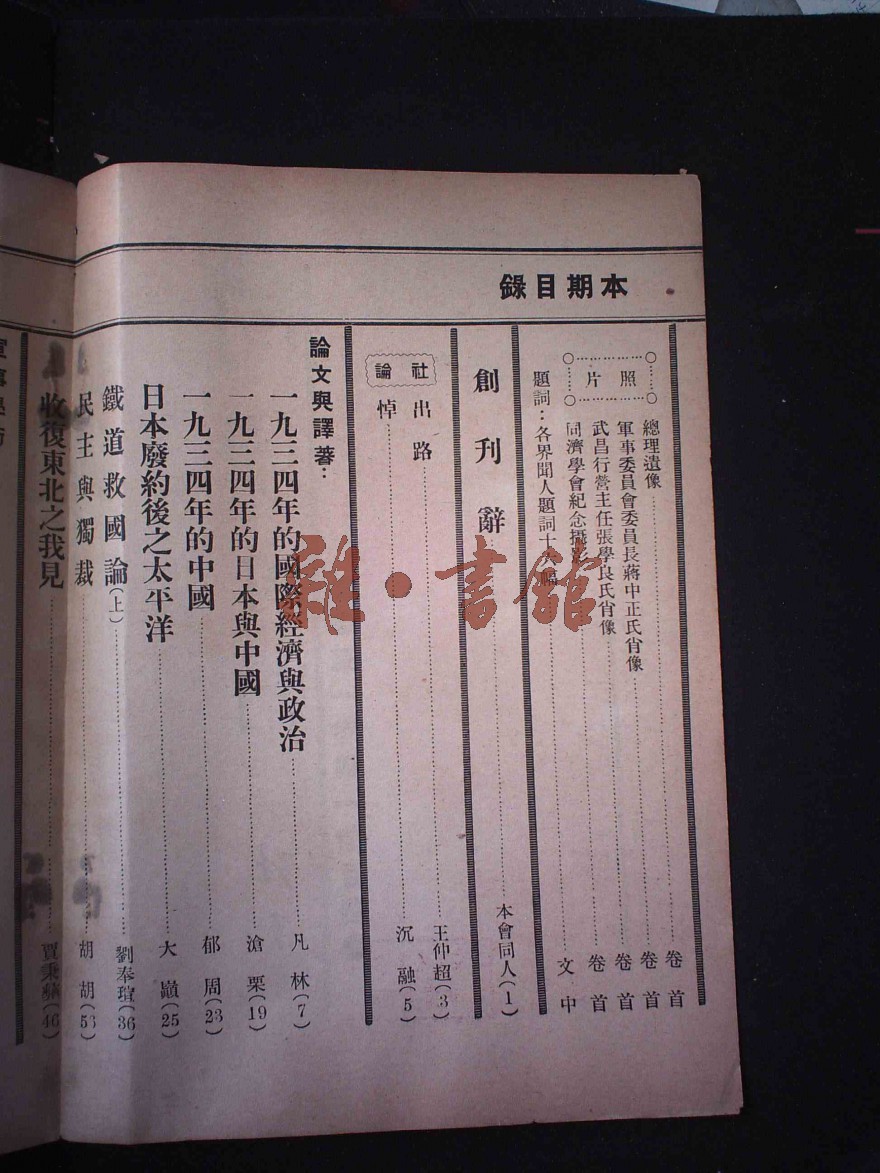 本期目錄
照片
總理遺像 卷首
軍事委員會委員長蔣中正氏肖像 卷首
武昌行營主任張學良氏肖像 卷首
同濟學會紀念攝影 卷首
題詞：各界聞人題詞十六幅 文中
創刊辭 本會同人(1)
社論
出路 王仲超(3)
悼 沉融(5)
論文與譯著：
一九三四年的國際經濟與政治 凡林(7)
一九三四年的日本與中國 滄栗(19)
一九三四年的中國 郁周(23)
日本廢約後之太平洋 大嶺(25)
鐵道救國論(上) 劉奉瑄(36)
民主與獨裁 胡胡(53)
收復東北之我見 賈秉 (46)
雅·書館